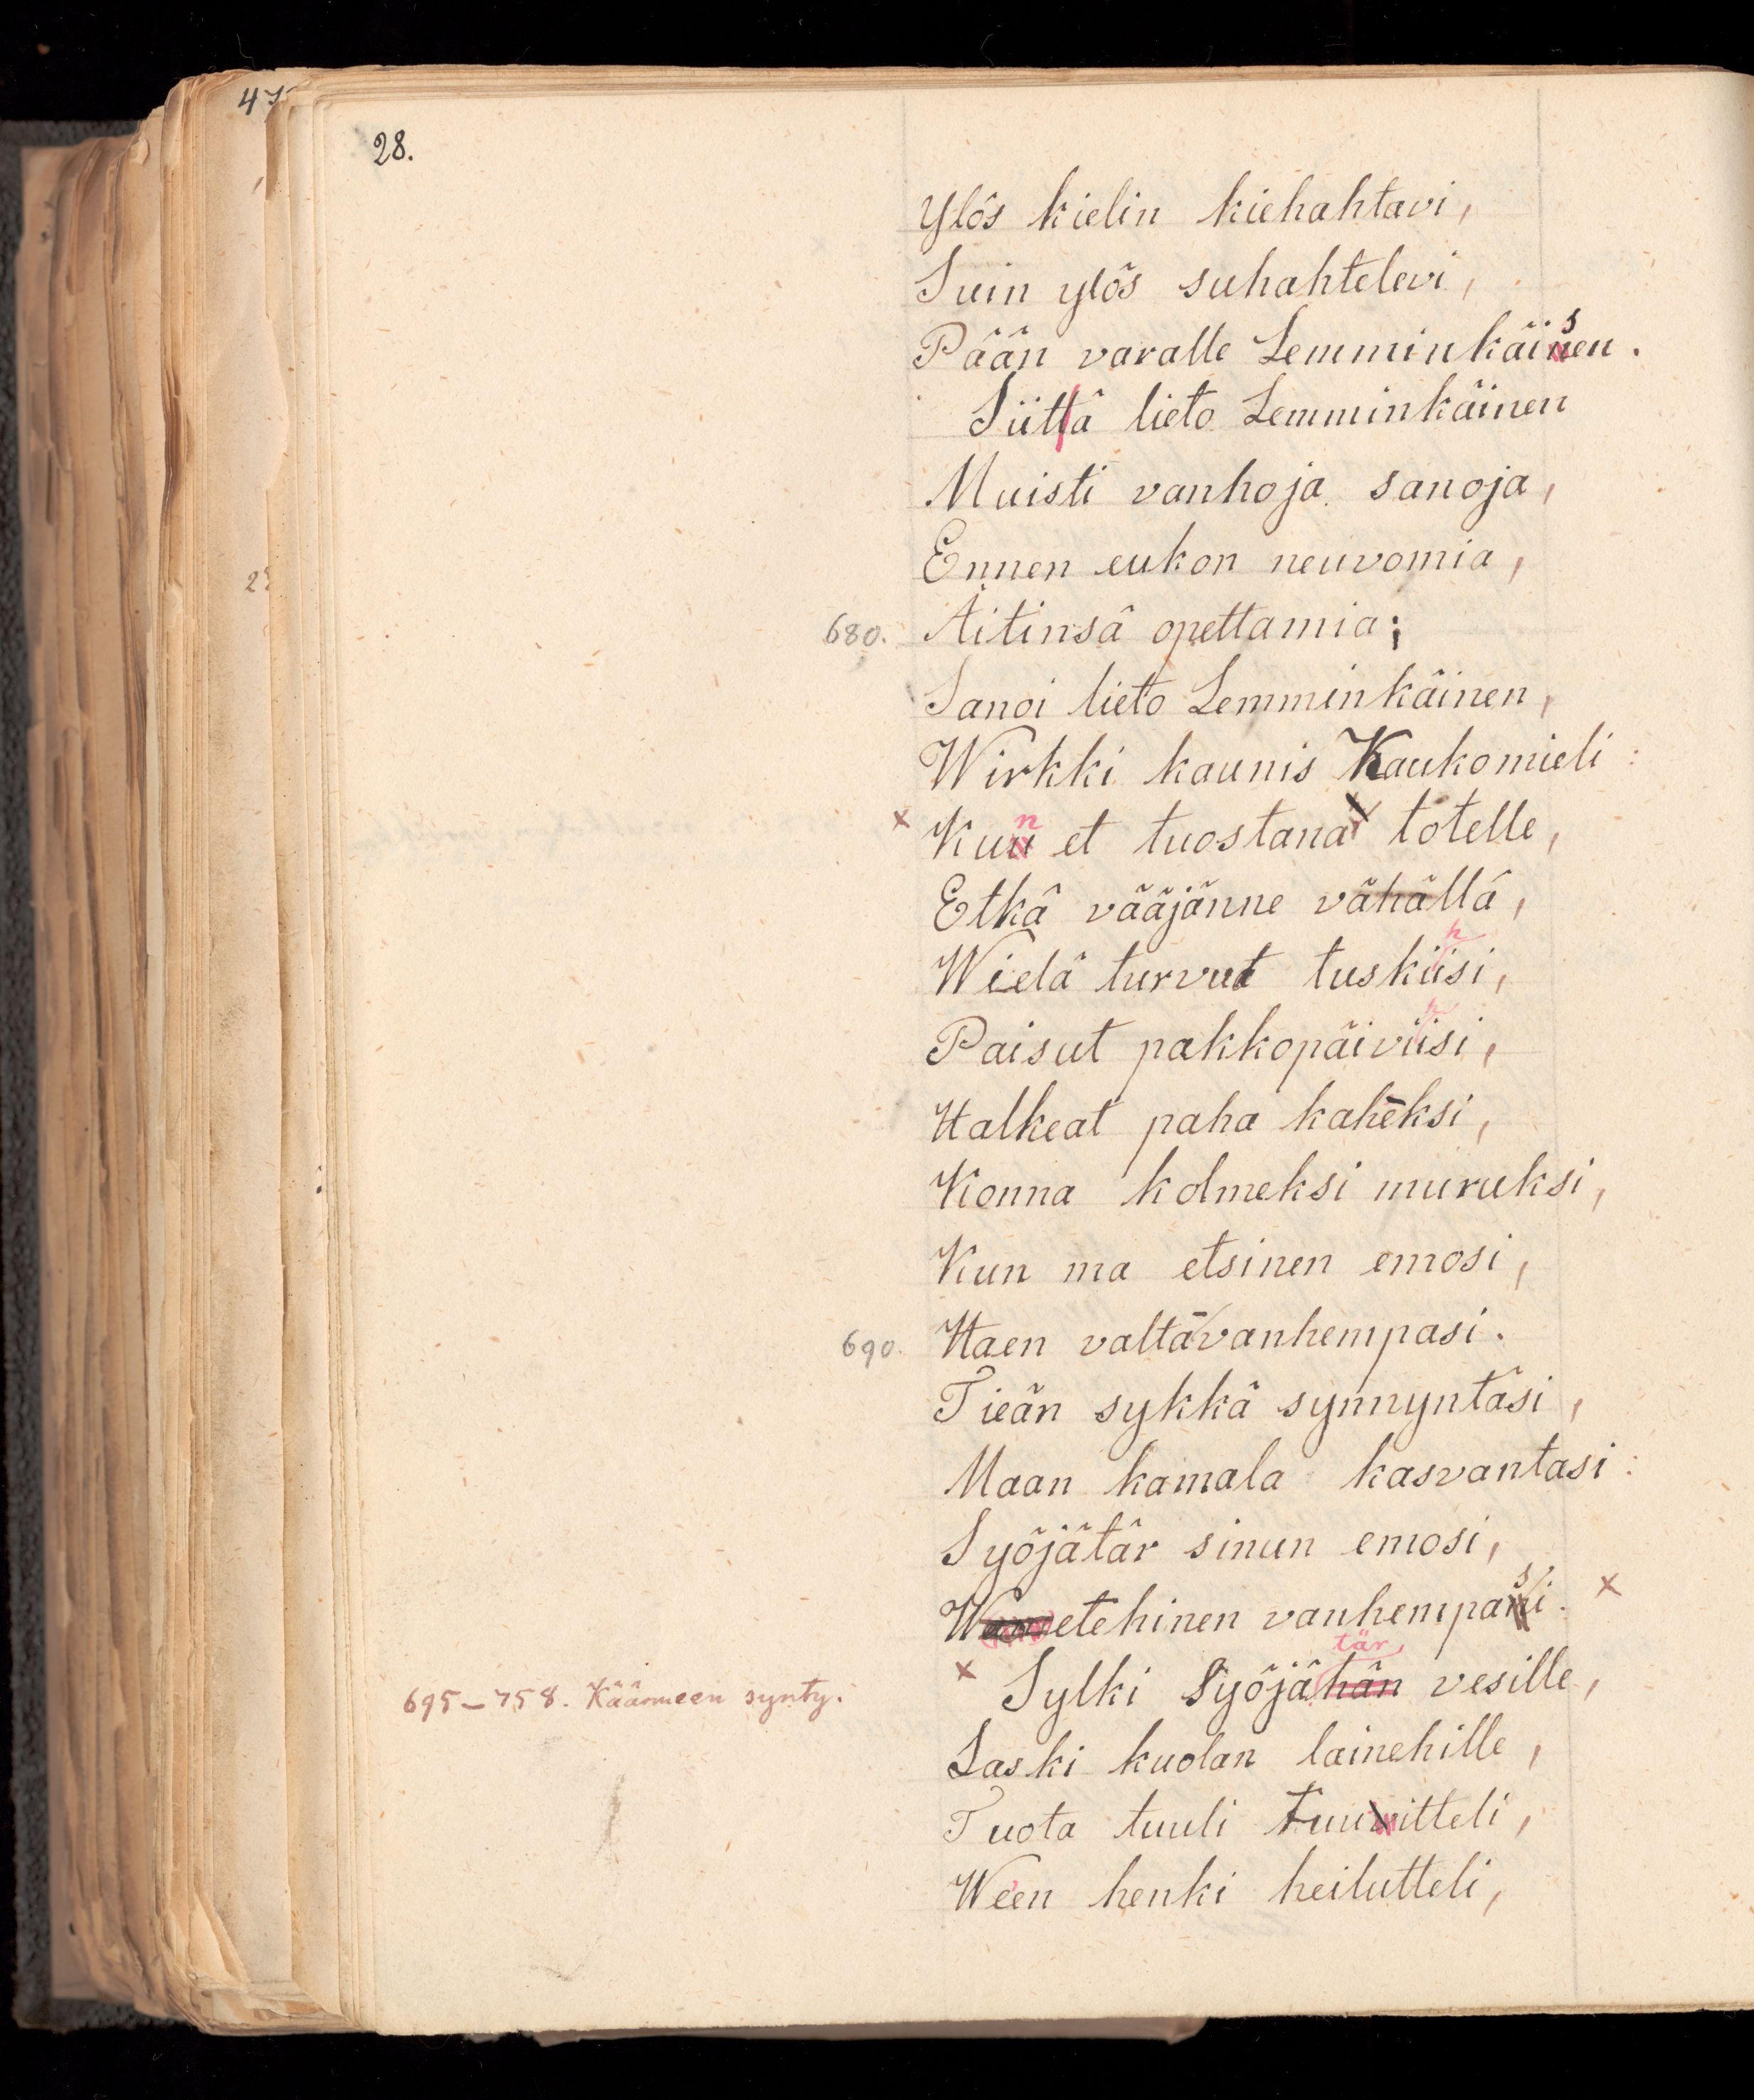 47
28.
2
Ylös kielin kiehahtavi,
Suin ylös suhahtelevi,
Pään varalle Lemminkäisen.
Siitä lieto Lemminkäinen
Muisti vanhoja sanoja,
Ennen eukon neuvomia,
680. Äitinsä opettamia;
Sanoi lieto Lemminkäinen,
Wirkki kaunis Kaukomieli:
x Kun et tuostana totelle,
Etkä vääjänne vähällä,
Wielä turvut tuskihisi,
Paisut pakkopäivihisi,
Halkeat paha kaheksi,
Konna kolmeksi muruksi,
Kun ma etsinen emosi,
690. Haen valtavanhempasi.
Tieän sykkä synnyntäsi,
Maan kamala kasvantasi:
Syöjätär sinun emosi,
Wetehinen vanhempasi. x
695–758. Käärmeen synty. x Sylki Syöjätär vesille,
Laski kuolan lainehille,
Tuota tuuli tuuitteli,
Ween henki heilutteli,